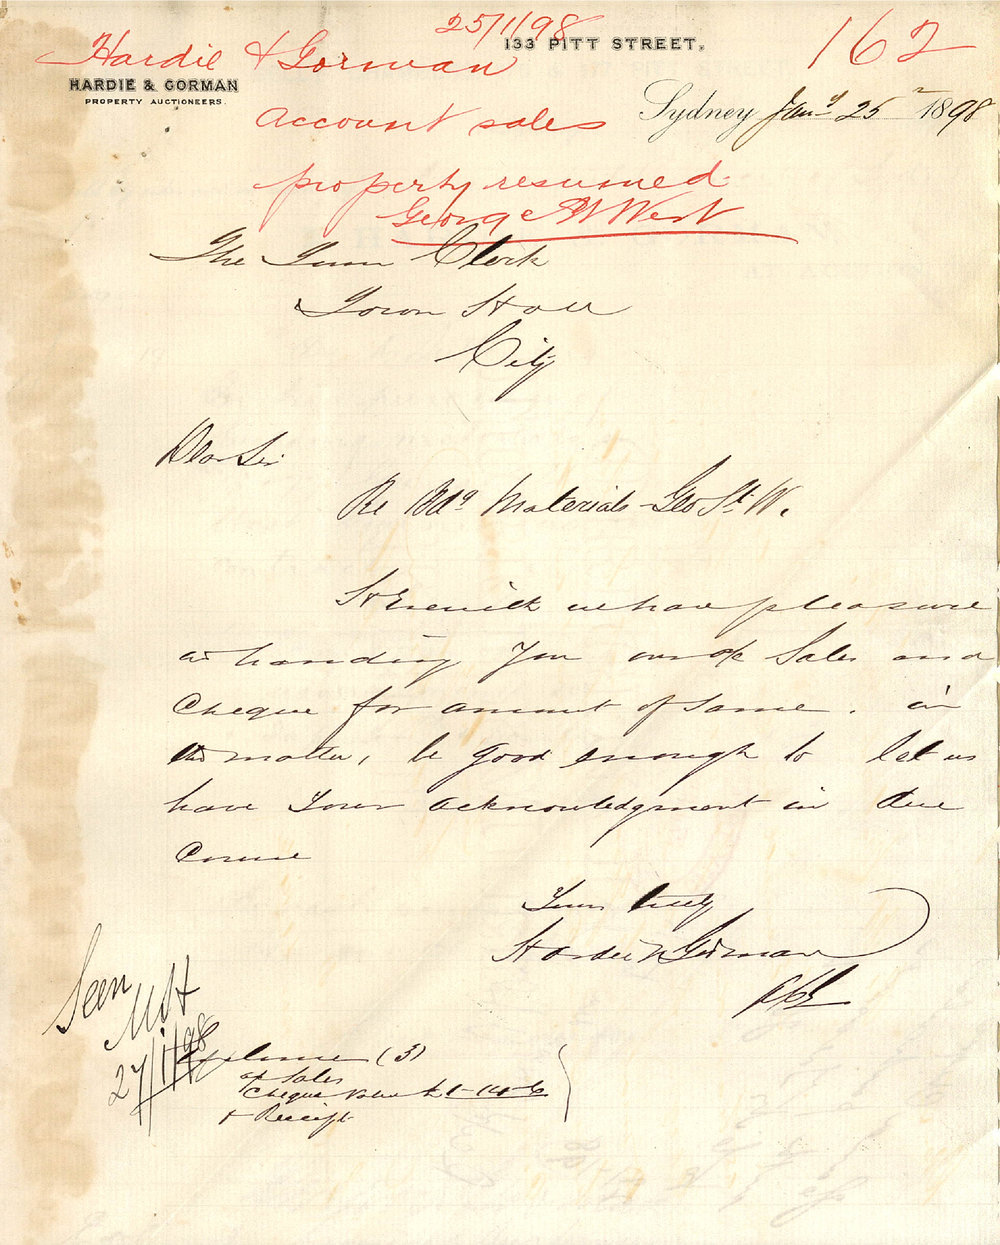 25/1/98
133 PITT STREET.
162
Hardie & Gorman
HARDIE & GORMAN
PROPERTY AUCTIONEERS.
Sydney Jany 25 1898
account sales
property resumed
George St West
The Town Clerk
Town Hall
City
Dear Sir
Re Bdg Materials Geo St. W.
Herewith we have pleasure
in handing you Sales and
Cheque for amount of same. in
this matter, be good enough to let us
have your acknowledgment in due
course
Yours truly
Hardie & Gorman
Seen
27/1/98
Enclosures (3)
a/ Sales
Cheque value £1-14-6
+ Receipt